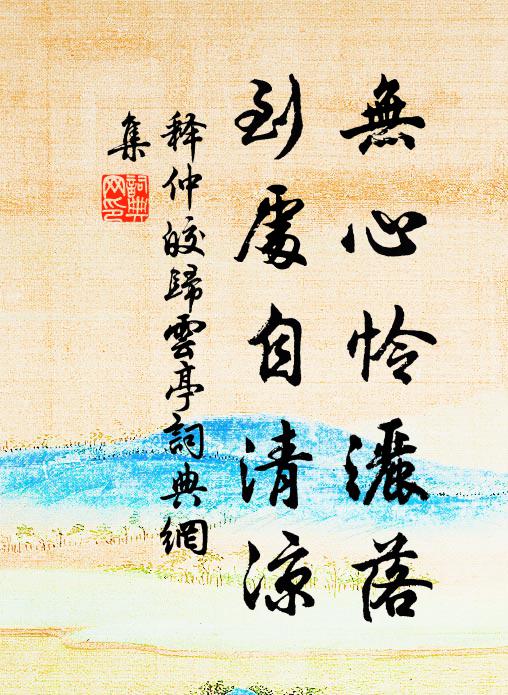 無心怜灑落
到處自清涼
释仲皎歸雲亭詞典網
集
詞典
网印